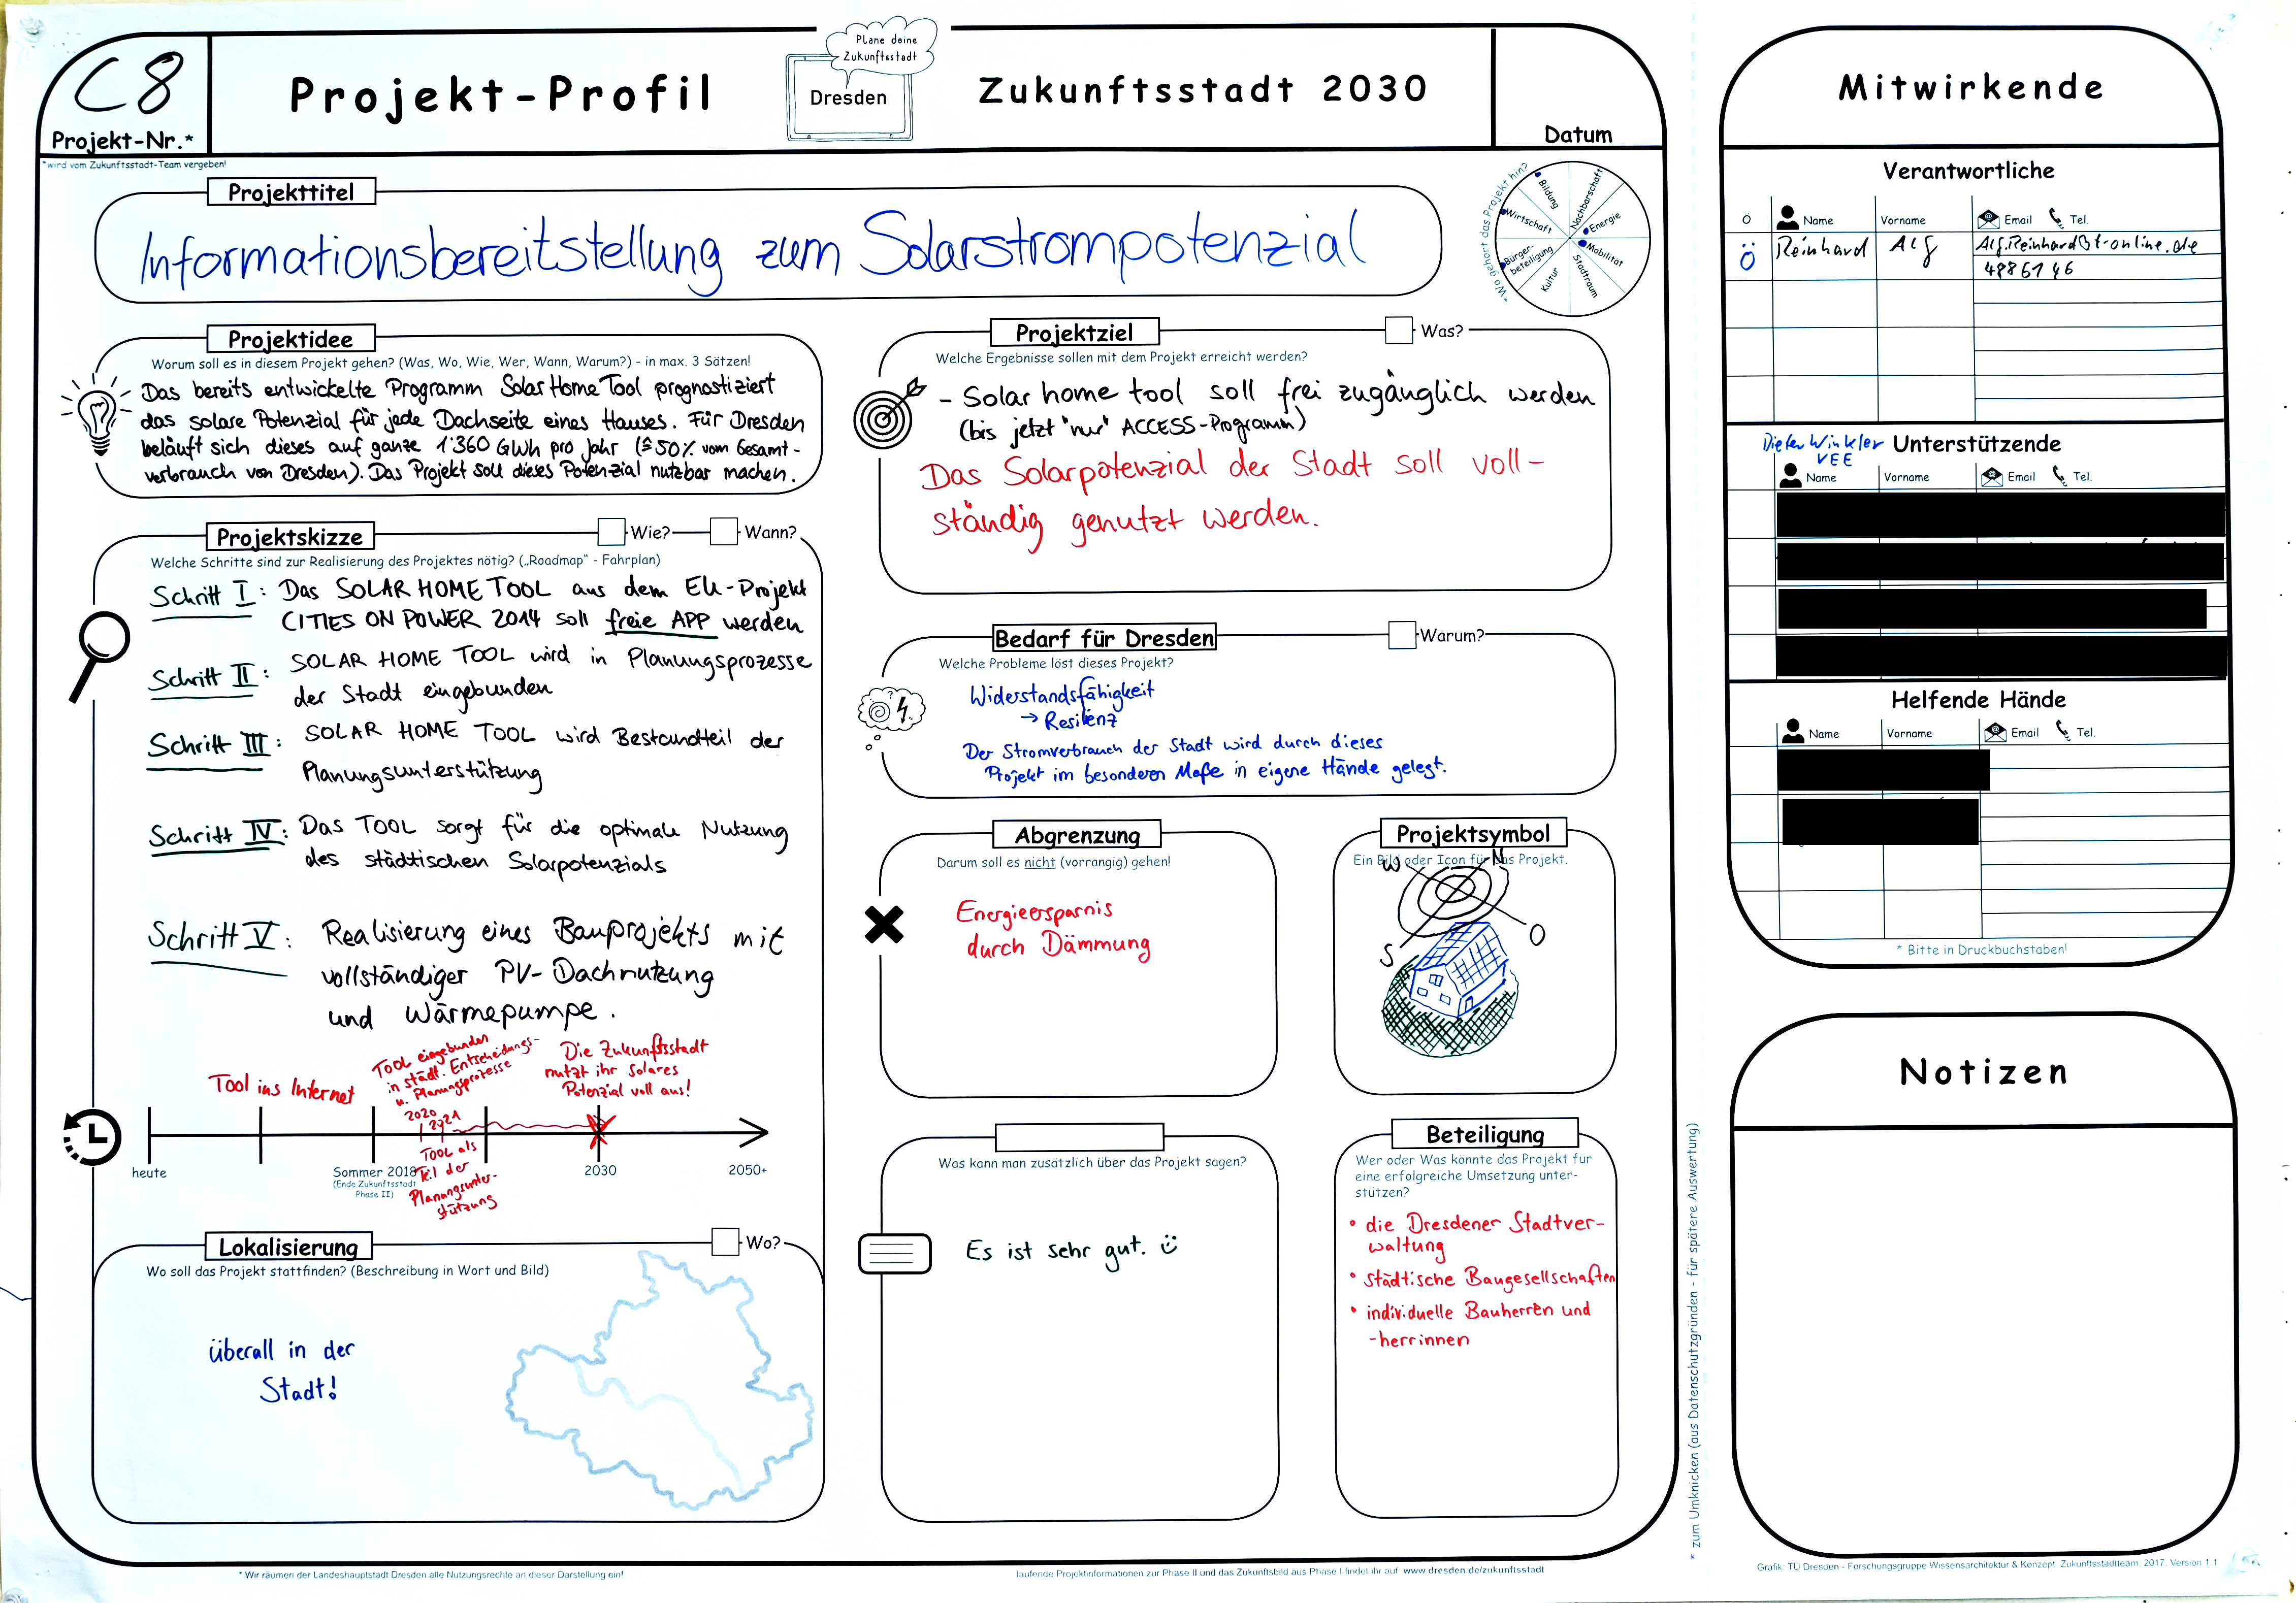 C8
Projekt-Nr.*
*wird vom Zukunftsstadt-Team vergeben!
Projekt-Profil
Plane deine
Zukunftsstadt
Dresden
Zukunftsstadt 2030
Datum
Projekttitel
Informationsbereitstellung zum Solarstrompotenzial
*Wo gehört das Projekt hin?
Bildung
Nachbarschaft
Energie
Mobilität
Stadtraum
Kultur
Bürger-
beteiligung
Wirtschaft
Projektidee
Worum soll es in diesem Projekt gehen? (Was, Wo, Wie, Wer, Wann, Warum?) - in max. 3 Sätzen!
Das bereits entwickelte Programm Solar Home Tool prognostiziert
das solare Potenzial für jede Dachseite eines Hauses. Für Dresden
beläuft sich dieses auf ganze 1'360 GWh pro Jahr (≙50% vom Gesamt-
verbrauch von Dresden). Das Projekt soll dieses Potenzial nutzbar machen.
Projektskizze
Wie?
Wann?
Welche Schritte sind zur Realisierung des Projektes nötig? („Roadmap" - Fahrplan)
Schritt I: Das SOLAR HOME TOOL aus dem EU-Projekt
CITIES ON POWER 2014 soll freie APP werden
Schritt II: SOLAR HOME TOOL wird in Planungsprozesse
der Stadt eingebunden
Schritt III: SOLAR HOME TOOL wird Bestandteil der
Planungsunterstützung
Schritt IV: Das TOOL sorgt für die optimale Nutzung
des städtischen Solarpotenzials
Schritt V: Realisierung eines Bauprojekts mit
vollständiger PV-Dachnutzung
und Wärmepumpe.
Tool ins Internet
TOOL eingebunden
in städt. Entscheidungs-
u. Planungsprozesse
2020
2021
Die Zukunftsstadt
nutzt ihr Solares
Potenzial voll aus!
TOOL als
Teil der
Planungsunter-
stützung
heute
Sommer 2018
(Ende Zukunftsstadt
Phase II)
2030
2050+
Lokalisierung
Wo?
Wo soll das Projekt stattfinden? (Beschreibung in Wort und Bild)
überall in der
Stadt!
Projektziel
Was?
Welche Ergebnisse sollen mit dem Projekt erreicht werden?
- Solar home tool soll frei zugänglich werden
(bis jetzt "nur" ACCESS-Programm)
Das Solarpotenzial der Stadt soll voll-
ständig genutzt werden.
Bedarf für Dresden
Warum?
Welche Probleme löst dieses Projekt?
Widerstandsfähigkeit
→ Resilienz
Der Stromverbrauch der Stadt wird durch dieses
Projekt im besonderen Maße in eigene Hände gelegt.
Abgrenzung
Darum soll es nicht (vorrangig) gehen!
Energieersparnis
durch Dämmung
Projektsymbol
Ein Bild oder Icon für das Projekt.
W
N
S
O
Was kann man zusätzlich über das Projekt sagen?
Es ist sehr gut. ☺
Beteiligung
Wer oder Was könnte das Projekt für
eine erfolgreiche Umsetzung unter-
stützen?
• die Dresdener Stadtver-
waltung
• städtische Baugesellschaften
• individuelle Bauherren und
-herrinnen
* Wir räumen der Landeshauptstadt Dresden alle Nutzungsrechte an dieser Darstellung ein!
laufende Projektinformationen zur Phase II und das Zukunftsbild aus Phase I findet ihr auf www.dresden.de/zukunftsstadt
* zum Umknicken (aus Datenschutzgründen - für spätere Auswertung)
Mitwirkende
Verantwortliche
Name Vorname Email Tel.
Reinhard Alf Alf.Reinhard@t-online.de
4886146
Dieter Winkler
VEE
Unterstützende
Name Vorname Email Tel.
Helfende Hände
Name Vorname Email Tel.
* Bitte in Druckbuchstaben!
Notizen
Grafik: TU Dresden - Forschungsgruppe Wissensarchitektur & Konzept: Zukunftsstadtteam, 2017, Version 1.1